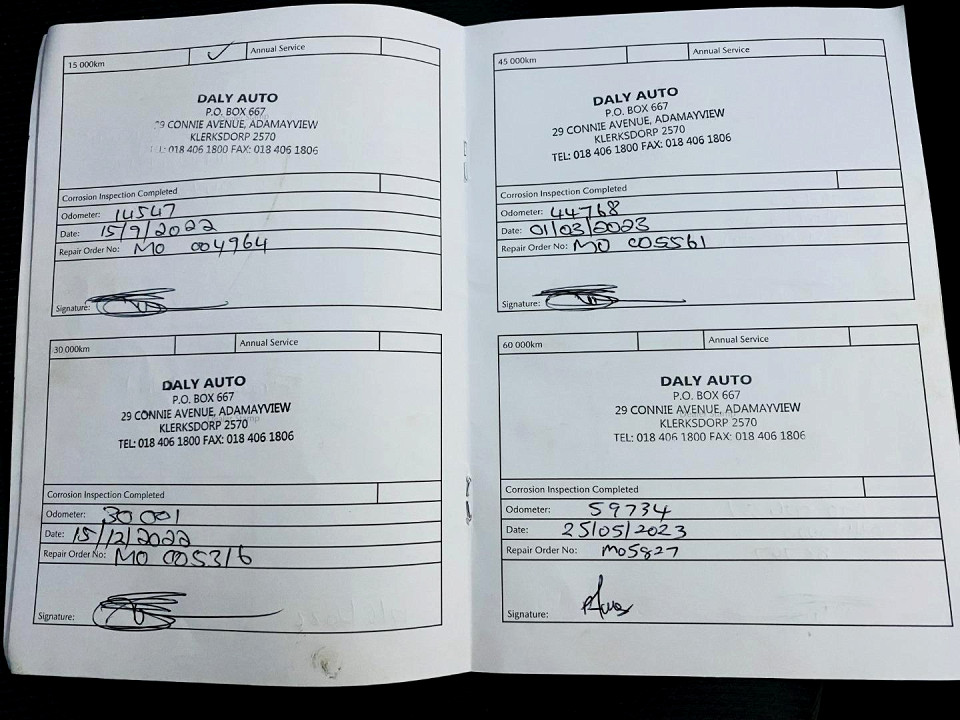 15 000km ✓ Annual Service
DALY AUTO
P.O. BOX 667
29 CONNIE AVENUE, ADAMAYVIEW
KLERKSDORP 2570
TEL: 018 406 1800 FAX: 018 406 1806
Corrosion Inspection Completed
Odometer: 14547
Date: 15/9/2022
Repair Order No: MO 004964
Signature:
30 000km Annual Service
DALY AUTO
P.O. BOX 667
29 CONNIE AVENUE, ADAMAYVIEW
KLERKSDORP 2570
TEL: 018 406 1800 FAX: 018 406 1806
Corrosion Inspection Completed
Odometer: 30 001
Date: 15/12/2022
Repair Order No: MO 005316
Signature:
45 000km Annual Service
DALY AUTO
P.O. BOX 667
29 CONNIE AVENUE, ADAMAYVIEW
KLERKSDORP 2570
TEL: 018 406 1800 FAX: 018 406 1806
Corrosion Inspection Completed
Odometer: 44768
Date: 01/03/2023
Repair Order No: MO 005561
Signature:
60 000km Annual Service
DALY AUTO
P.O. BOX 667
29 CONNIE AVENUE, ADAMAYVIEW
KLERKSDORP 2570
TEL: 018 406 1800 FAX: 018 406 1806
Corrosion Inspection Completed
Odometer: 59734
Date: 25/05/2023
Repair Order No: MO5827
Signature: